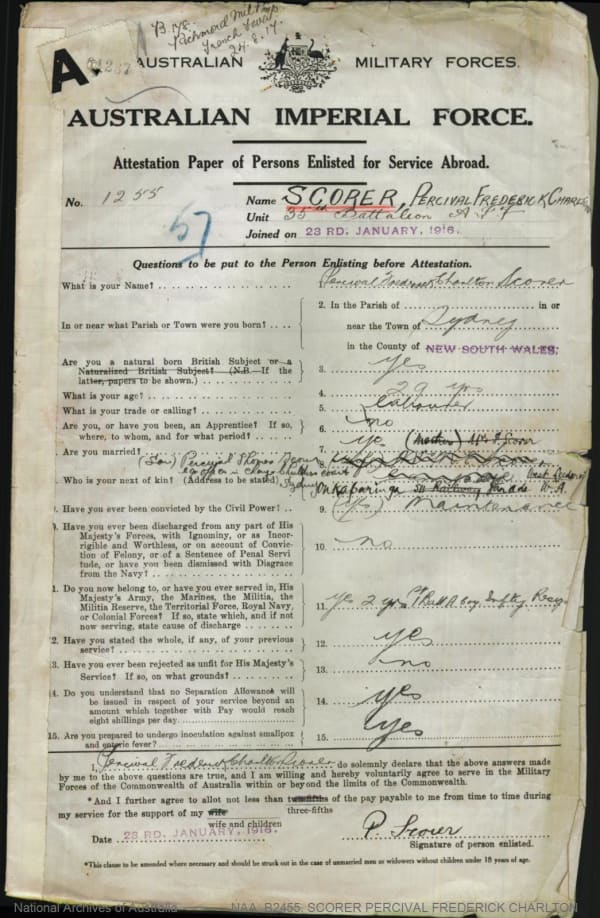 B. 178.
Richmond Mil. Hosp
French Fever
24.8.17.
A.
AUSTRALIAN MILITARY FORCES.
AUSTRALIAN IMPERIAL FORCE.
Attestation Paper of Persons Enlisted for Service Abroad.
No. 1255
Name SCORER, PERCIVAL FREDERICK CHARL
Unit 35th Battalion A I F
Joined on 23 RD. JANUARY, 1916.
57
Questions to be put to the Person Enlisting before Attestation.
What is your Name? Percival Frederick Charlton Scorer
In or near what Parish or Town were you born? 2. In the Parish of in or
near the Town of Sydney
in the County of NEW SOUTH WALES.
Are you a natural born British Subject or a
Naturalized British Subject? (N.B.—If the
latter, papers to be shown.) 3. yes
What is your age? 4. 29 yrs
What is your trade or calling? 5. Labourer
Are you, or have you been, an Apprentice? If so,
where, to whom, and for what period? 6. no
Are you married? 7. yes (Mother) Mrs. Scorer
Who is your next of kin? (Address to be stated) 8.
(Son) Percival Thomas Scorer
Sydney
Parade W. A.
Have you ever been convicted by the Civil Power? 9. (yes) Maintenance
Have you ever been discharged from any part of His
Majesty's Forces, with Ignominy, or as Incor-
rigible and Worthless, or on account of Convic-
tion of Felony, or of a Sentence of Penal Servi
tude, or have you been dismissed with Disgrace
from the Navy? 10. no
1. Do you now belong to, or have you ever served in, His
Majesty's Army, the Marines, the Militia, the
Militia Reserve, the Territorial Force, Royal Navy,
or Colonial Forces? If so, state which, and if not
now serving, state cause of discharge 11. yes 2 yrs
2. Have you stated the whole, if any, of your previous
service? 12. yes
3. Have you ever been rejected as unfit for His Majesty's
Service? If so, on what grounds? 13. no
4. Do you understand that no Separation Allowance will
be issued in respect of your service beyond an
amount which together with Pay would reach
eight shillings per day 14. yes
15. Are you prepared to undergo inoculation against smallpox
and enteric fever? 15. yes
I, Percival Frederick Charlton Scorer do solemnly declare that the above answers made
by me to the above questions are true, and I am willing and hereby voluntarily agree to serve in the Military
Forces of the Commonwealth of Australia within or beyond the limits of the Commonwealth.
*And I further agree to allot not less than two-fifths of the pay payable to me from time to time during
three-fifths
my service for the support of my wife
wife and children
Date 23 RD. JANUARY, 1916.
P. Scorer
Signature of person enlisted.
*This clause to be amended where necessary and should be struck out in the case of unmarried men or widowers without children under 18 years of age.
National Archives of Australia NAA: B2455, SCORER PERCIVAL FREDERICK CHARLTON